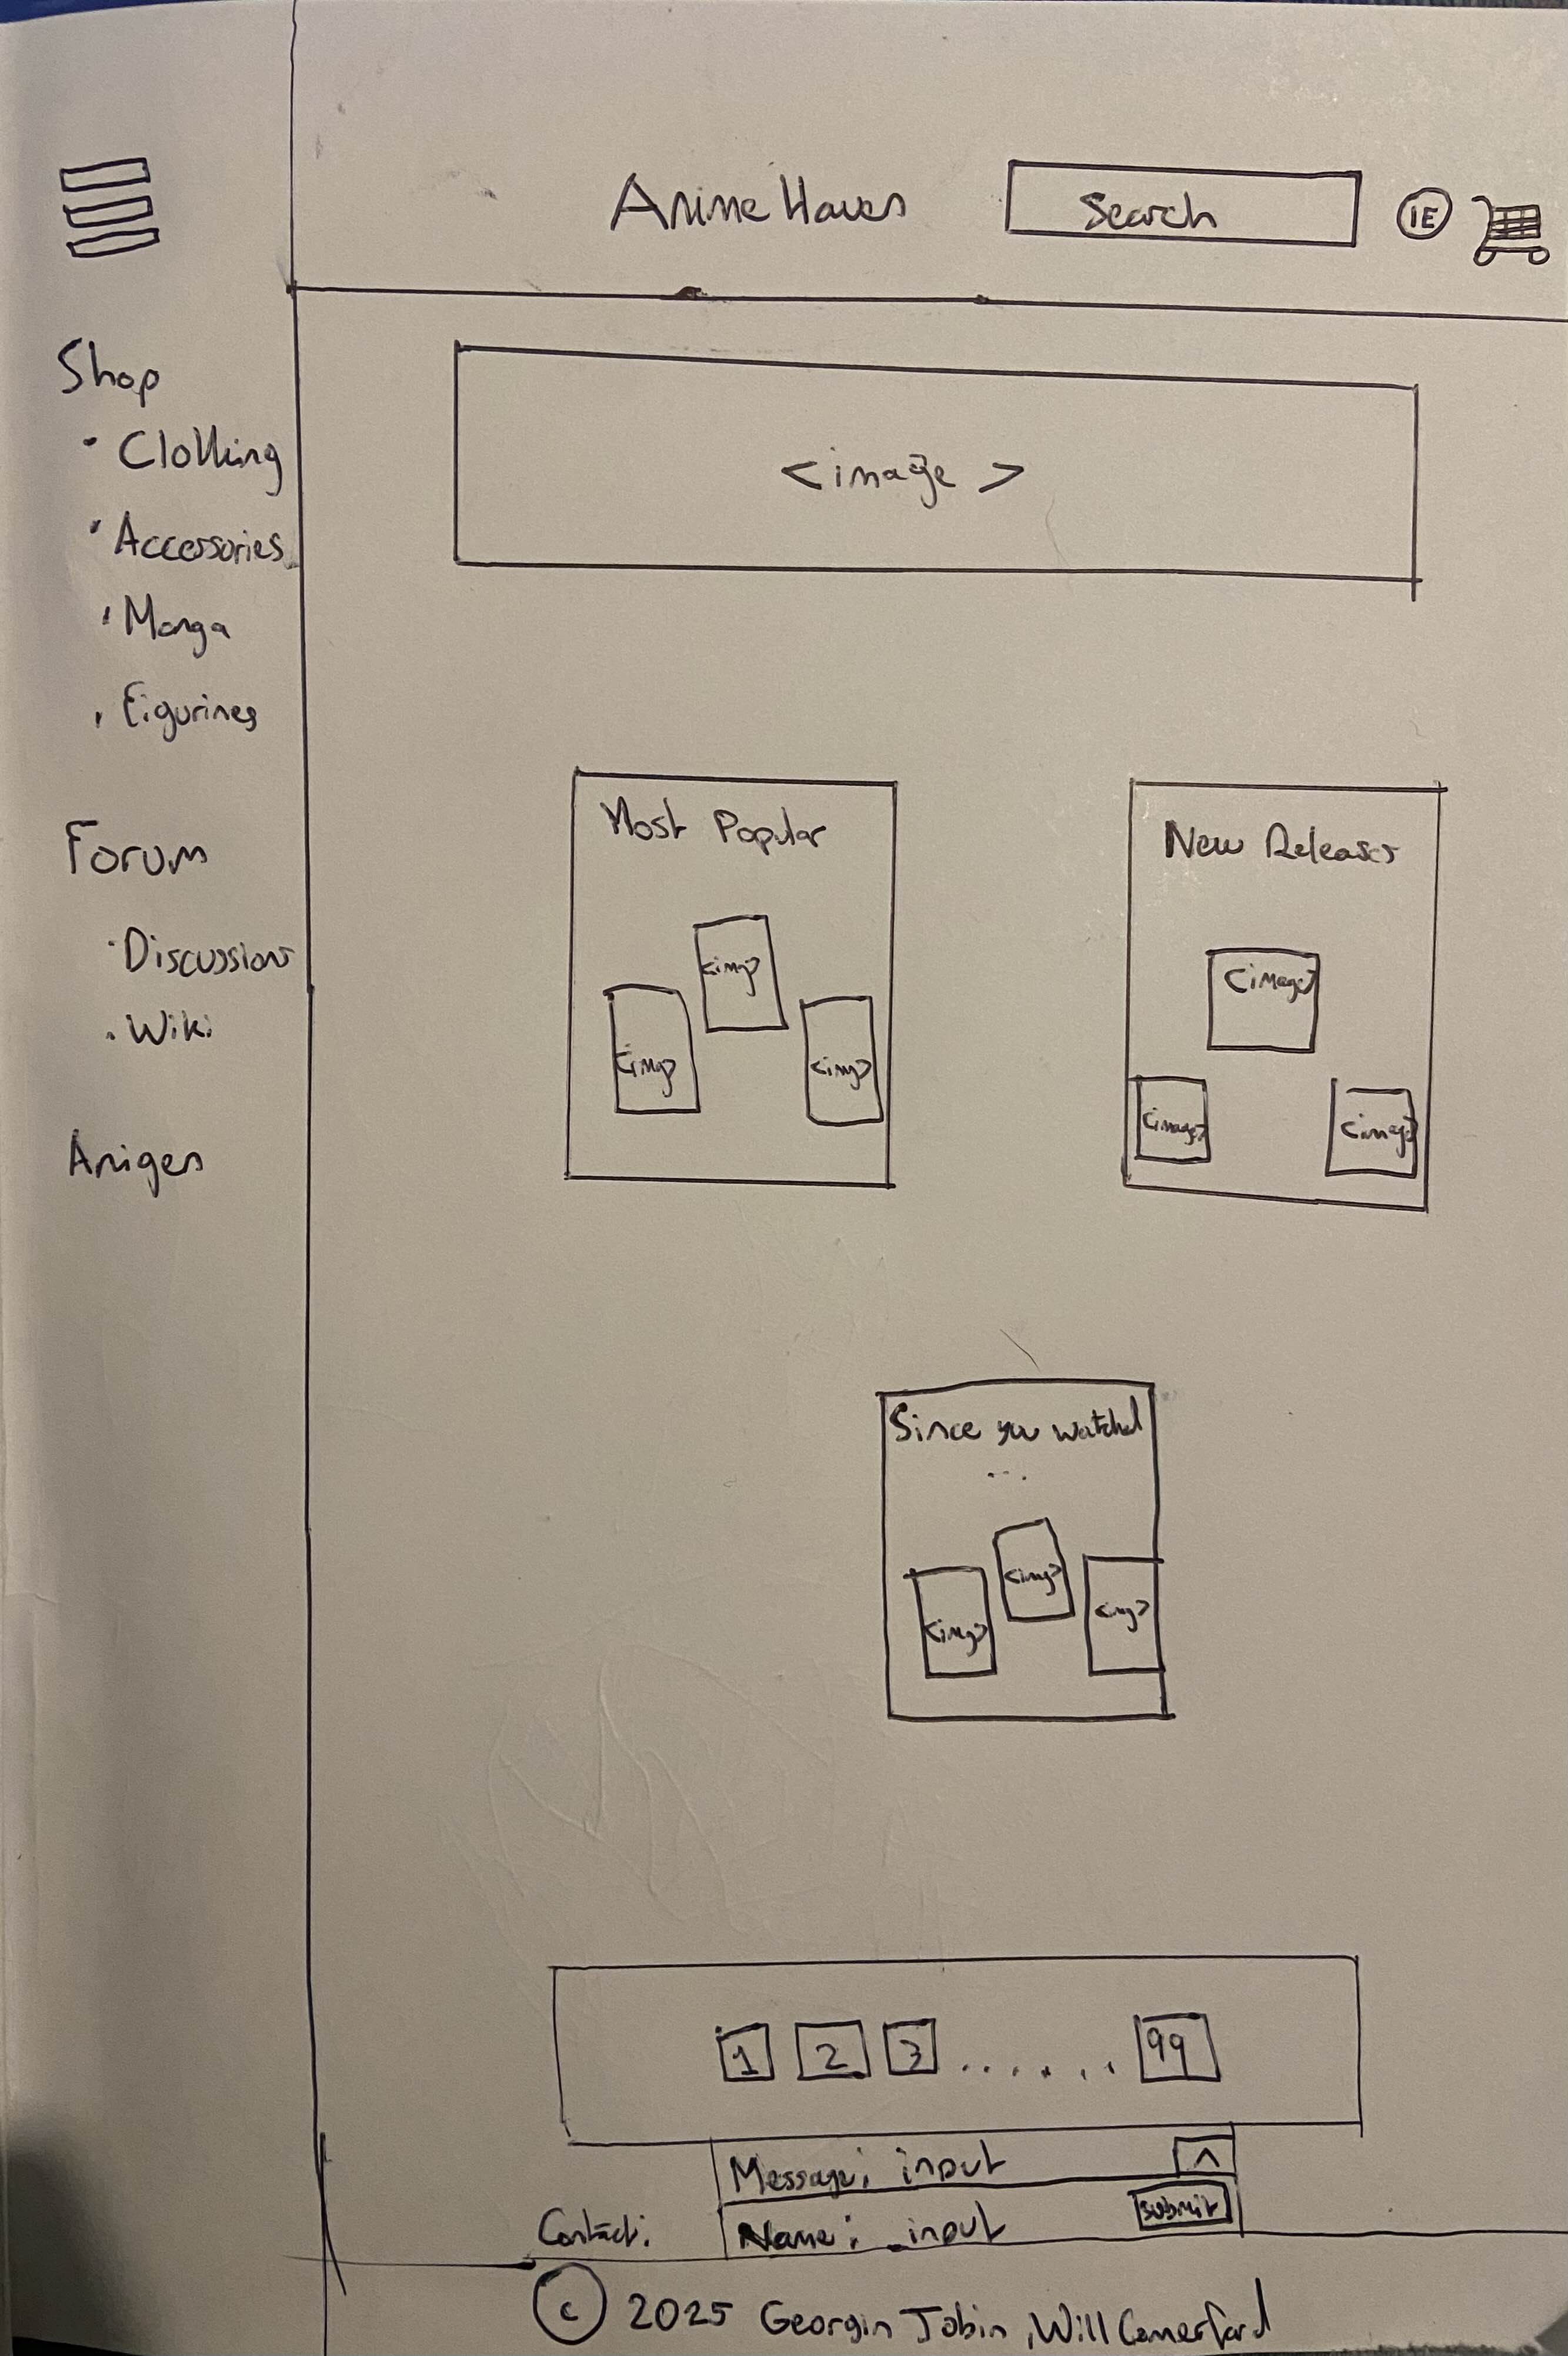 Anime Haven
Search
IE
Shop
· Clothing
· Accessories
· Manga
· Figurines
Forum
· Discussions
· Wiki
Anigen
<image>
Most Popular
<img>
<img>
<img>
New Releases
<image>
<image>
<image>
Since you watched
...
<img>
<img>
<img>
1 2 3 ....... 99
Message: input ^
Contact: Name: input submit
© 2025 Georgin Jobin, Will Comerford